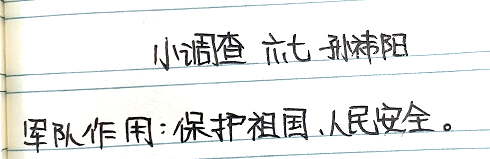 小调查 六七 孙祎阳
军队作用:保护祖国、人民安全。